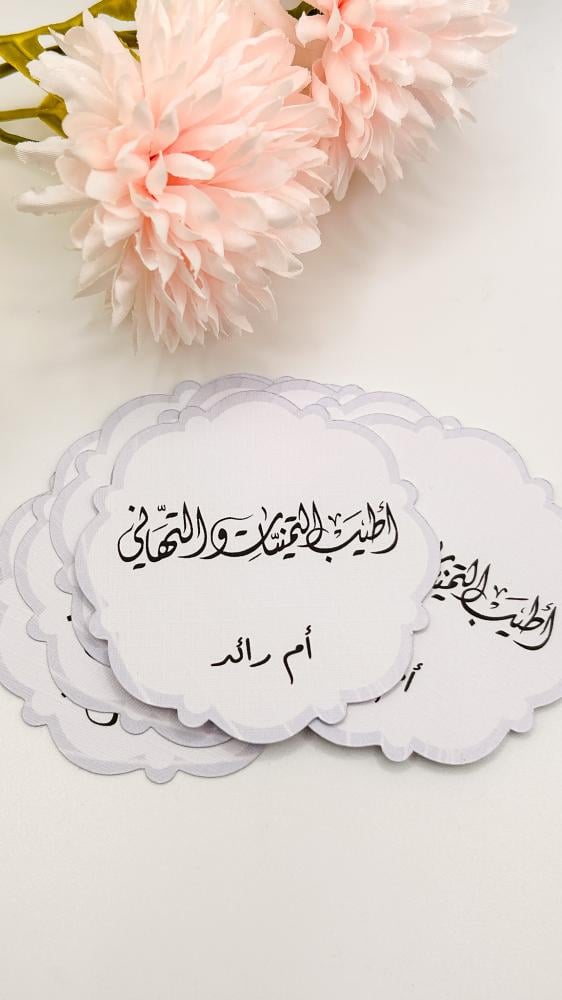 أطيب التمنيات والتهاني
أم رائد
أطيب التمنيـ
أم